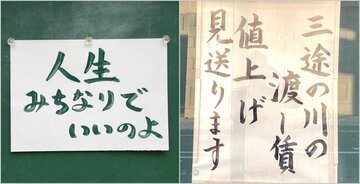 人生
みちなりで
いいのよ
三途の川の
渡し賃
値上げ
見送ります